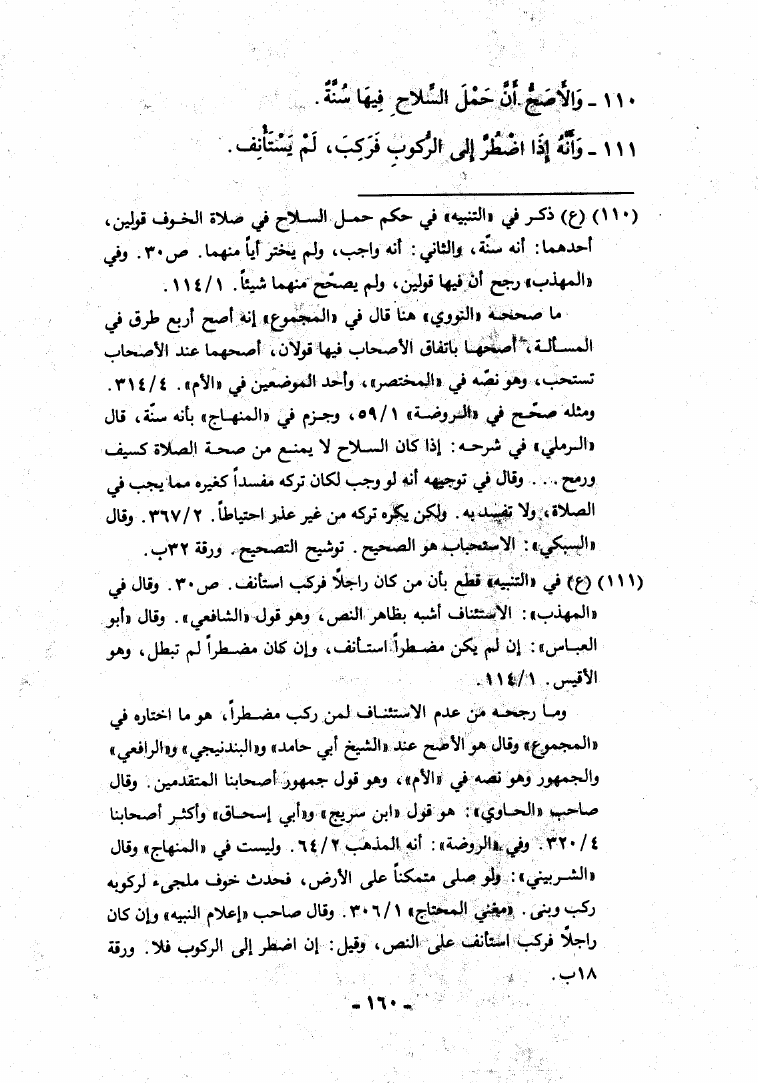 ١١٠ - وَالأَصَحُّ أَنَّ حَمْلَ السِّلاحِ فِيهَا سُنَّةٌ.
١١١ - وَأَنَّهُ إِذَا اضْطُرَّ إلى الرُّكوبِ فَرَكِبَ، لَمْ يَسْتَأْنِف.
(١١٠) (ع) ذكر في «التنبيه» في حكم حمل السلاح في صلاة الخوف قولين،
أحدهما: أنه سنّة، والثاني: أنه واجب، ولم يختر أياً منهما. ص٣٠. وفي
«المهذب» رجح أن فيها قولين، ولم يصحّح منهما شيئاً. ١/ ١١٤.
ما صححه «النووي» هنا قال في «المجموع» إنه أصح أربع طرق في
المسألة، أصحها باتفاق الأصحاب فيها قولان، أصحهما عند الأصحاب
تستحب، وهو نصّه في «المختصر»، وأحد الموضعين في «الأم». ٤/ ٣١٤.
ومثله صحّح في «الروضة» ١/ ٥٩، وجزم في «المنهاج» بأنه سنّة، قال
«الرملي» في شرحه: إذا كان السلاح لا يمنع من صحة الصلاة كسيف
ورمح... وقال في توجيهه أنه لو وجب لكان تركه مفسداً كغيره مما يجب في
الصلاة، ولا تفسد به. ولكن يكره تركه من غير عذر احتياطاً. ٢/ ٣٦٧. وقال
«السبكي»: الاستحباب هو الصحيح. توشيح التصحيح. ورقة ٣٢ب.
(١١١) (ع) في «التنبيه» قطع بأن من كان راجلاً فركب استأنف. ص٣٠. وقال في
«المهذب»: الاستئناف أشبه بظاهر النص، وهو قول «الشافعي». وقال «أبو
العباس»: إن لم يكن مضطراً استأنف، وإن كان مضطراً لم تبطل، وهو
الأقيس. ١/ ١١٤.
وما رجحه من عدم الاستئناف لمن ركب مضطراً، هو ما اختاره في
«المجموع» وقال هو الأصح عند «الشيخ أبي حامد» و«البندنيجي» و«الرافعي»
والجمهور وهو نصه في «الأم»، وهو قول جمهور أصحابنا المتقدمين. وقال
صاحب «الحاوي»: هو قول «ابن سريج» و«أبي إسحاق» وأكثر أصحابنا
٤/ ٣٢٠. وفي «الروضة»: أنه المذهب ٢/ ٦٤. وليست في «المنهاج» وقال
«الشربيني»: ولو صلى متمكناً على الأرض، فحدث خوف ملجىء لركوبه
ركب وبنى. «مغني المحتاج» ١/ ٣٠٦. وقال صاحب «إعلام النبيه» وإن كان
راجلاً فركب استأنف على النص، وقيل: إن اضطر إلى الركوب فلا. ورقة
١٨ب.
- ١٦٠ -